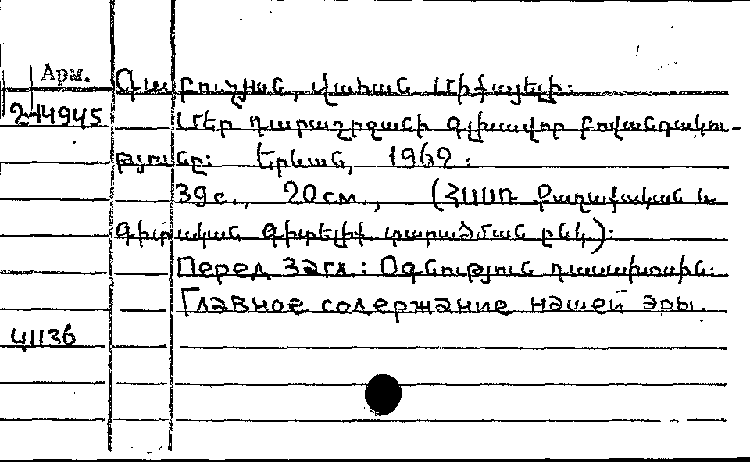 Арм.
Գաբուչյան, վահան Միքայելի:
2-14945
Մեր դարաշրջանի գլխավոր բովանդակու-
թյունը: Երևան, 1962:
39с., 20см., (ՀՍՍՌ Քաղաքական և
գիտական գիտելիք. տարածման ընկ.):
Перед загл.: Օգնություն դասախոսին.
Главное содержание нашей эры.
41136